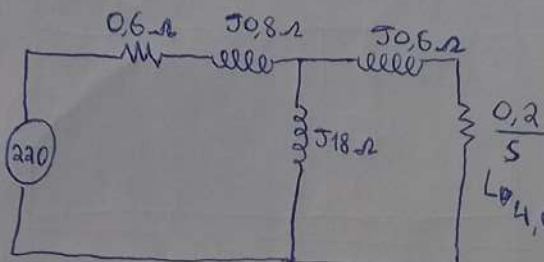 0,6 Ω
J0,8 Ω
J0,6 Ω
220
J18 Ω
0,2
S